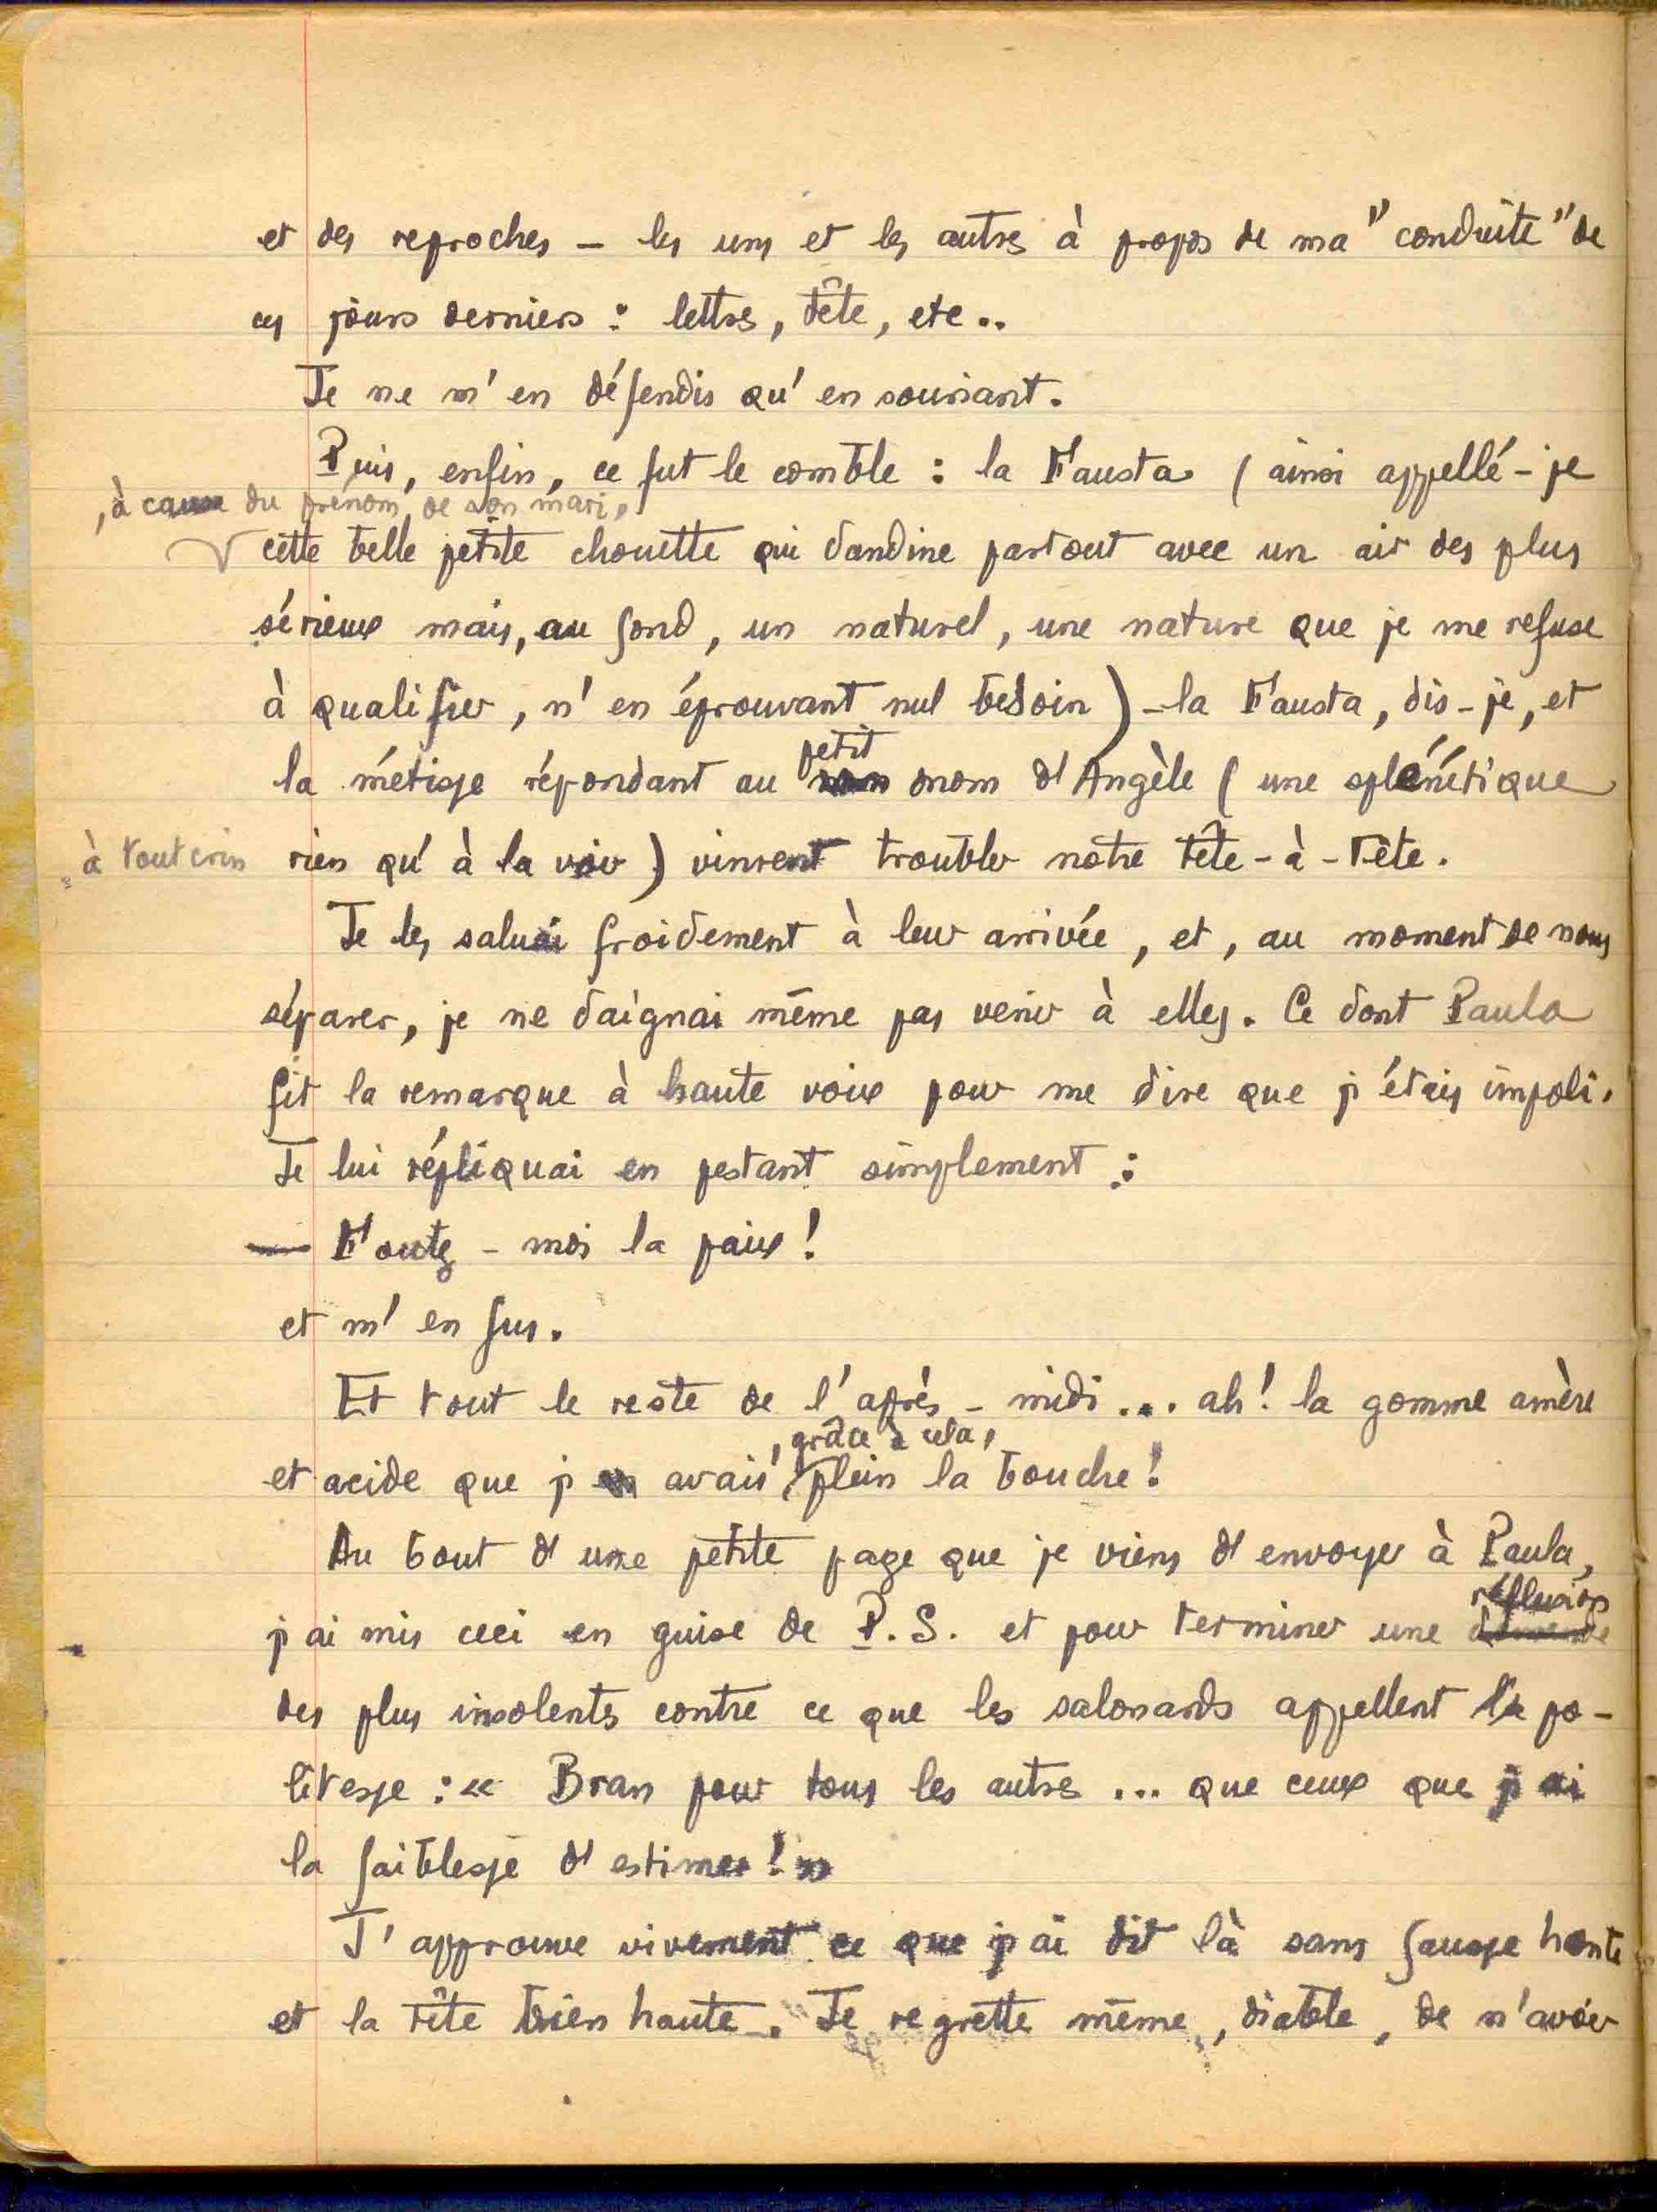 et des reproches — les uns et les autres à propos de ma "conduite" de
ces jours derniers : lettres, tête, etc..
Je ne m'en défendis qu'en souriant.
Puis, enfin, ce fut le comble : la Fausta (ainsi appellé-je
, à cause du prénom de son mari,
cette belle petite chouette qui dandine partout avec un air des plus
sérieux mais, au fond, un naturel, une nature que je me refuse
à qualifier, n'en éprouvant nul besoin) — la Fausta, dis-je, et
petit
la métisse répondant au nom d'Angèle (une splénétique
à tout crin rien qu'à la voir) vinrent troubler notre tête-à-tête.
Je les saluai froidement à leur arrivée, et, au moment de nous
séparer, je ne daignai même pas venir à elles. Ce dont Paula
fit la remarque à haute voix pour me dire que j'étais impoli.
Je lui répliquai en pestant simplement :
— Foutez-moi la paix !
et m'en fus.
Et tout le reste de l'après-midi ... ah ! la gomme amère
, grâce à cela,
et acide que j'avais plein la bouche !
Au bout d'une petite page que je viens d'envoyer à Paula,
réflexion
j'ai mis ceci en guise de P.S. et pour terminer une
des plus insolents contre ce que les salonards appellent la po-
litesse : « Bran pour tous les autres ... que ceux que j'ai
la faiblesse d'estimer ! »
J'approuve vivement ce que j'ai dit là sans fausse honte
et la tête bien haute. Je regrette même, diable, de n'avoir